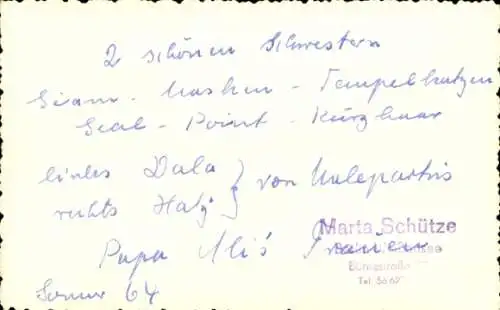 2 schönen Schwestern
Siam - Masken - Tempelkatzen
Seal - Point - Kurzhaar
links Dala } von Malepartis
rechts Hatz
Papa Ali's Frauen
Marta Schütze
Tel. 56 62
Somer 64